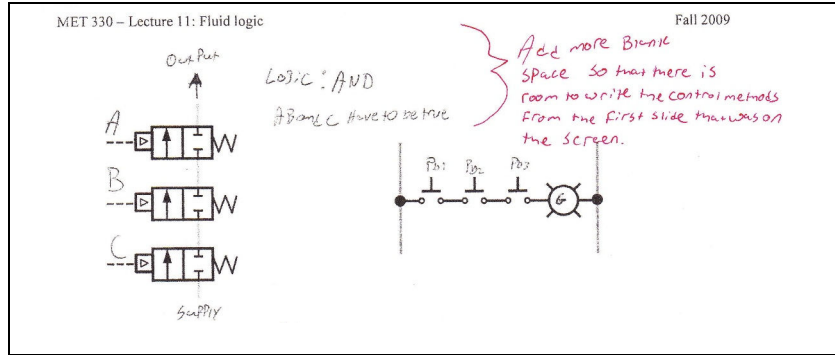 MET 330 – Lecture 11: Fluid logic
Fall 2009
OutPut
Logic: AND
A B and C Have to be true
Add more Blank
space so that there is
room to write the control metnods
from the first slide that was on
the screen.
A
B
C
SUPPLY
PB1 PB2 PB3
G